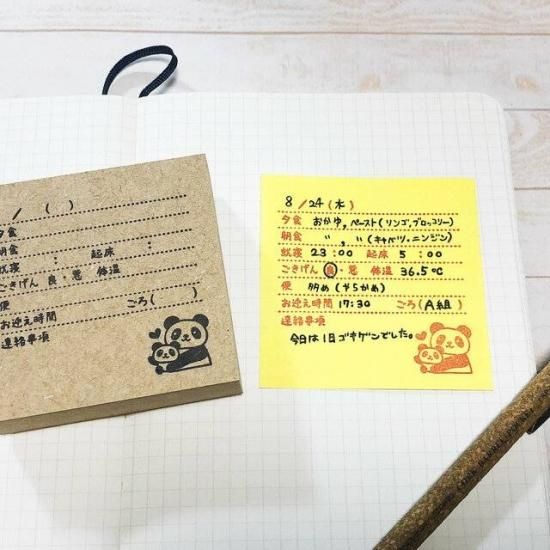 / ( )
夕食
朝食
就寝 : 起床 :
ごきげん 良・悪 体温
便
お迎え時間 ごろ( )
連絡事項
8/24(木)
夕食 おかゆ,ペースト(リンゴ,ブロッコリー)
朝食 〃,〃(キャベツ,ニンジン)
就寝 23:00 起床 5:00
ごきげん 良・悪 体温 36.5℃
便 多め(やらかめ)
お迎え時間 17:30 ごろ(A組)
連絡事項
今日は1日ゴキゲンでした。